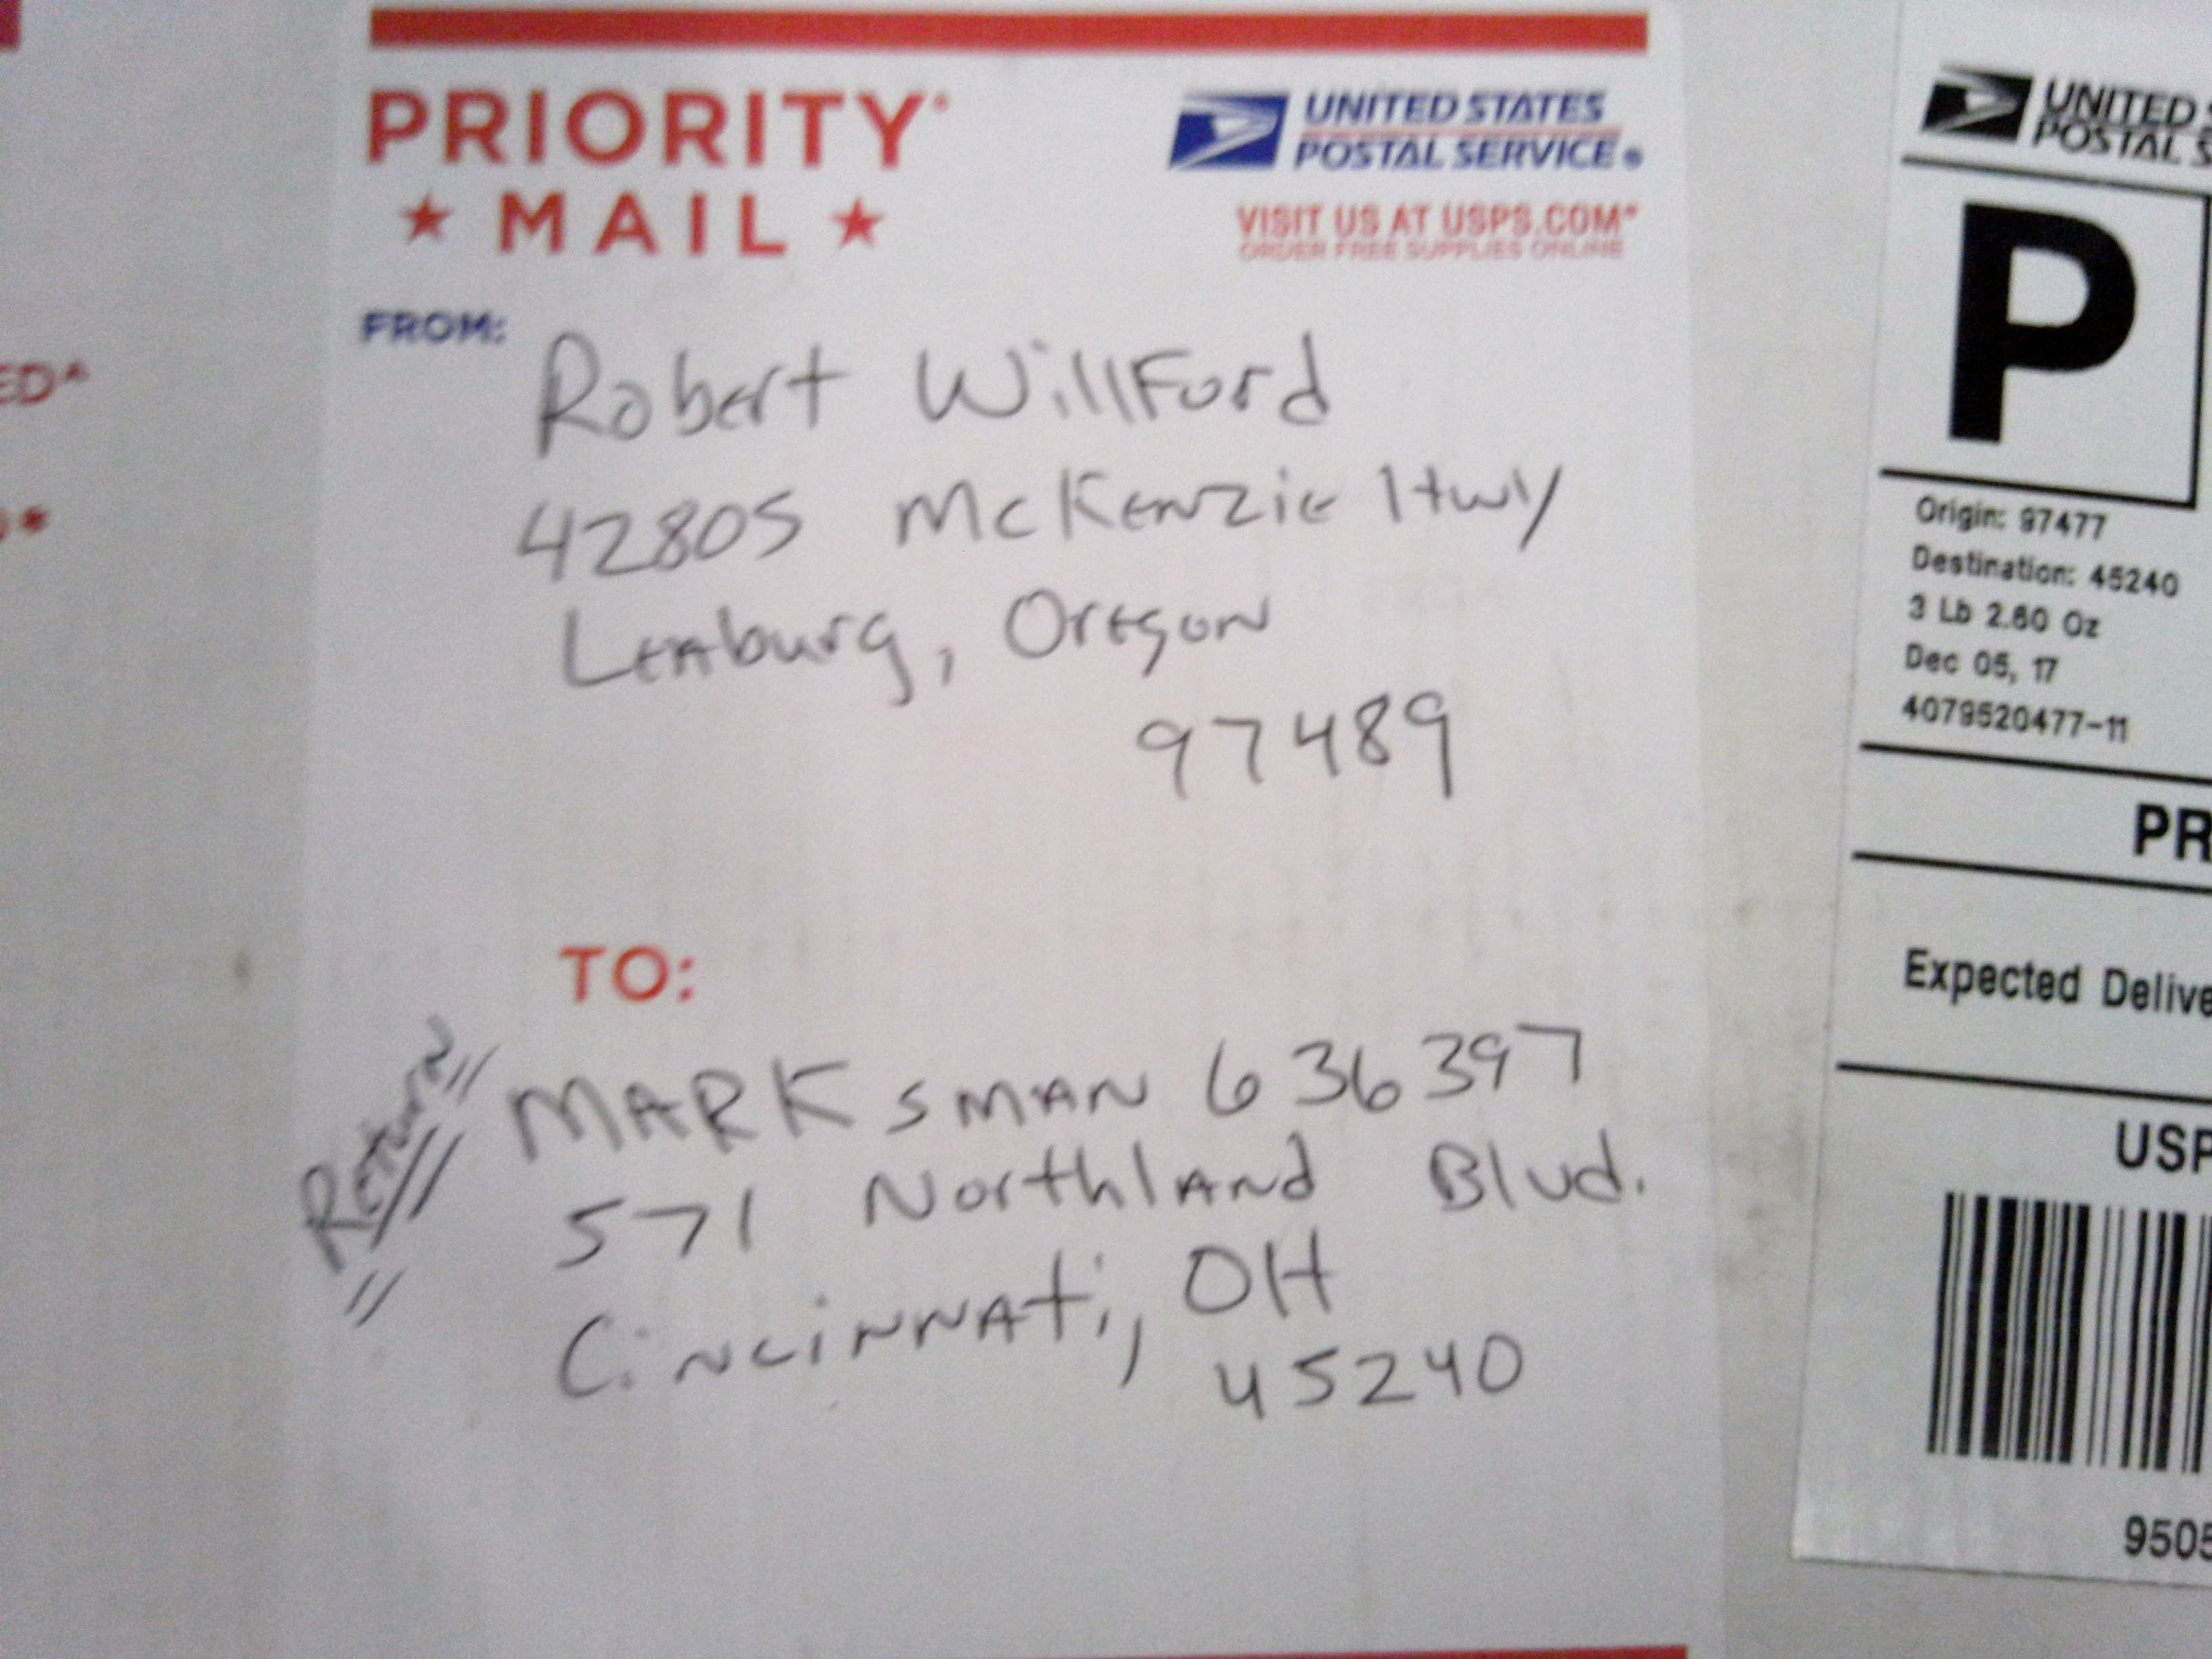 PRIORITY
★ MAIL ★
UNITED STATES
POSTAL SERVICE
VISIT US AT USPS.COM
ORDER FREE SUPPLIES ONLINE
FROM:
Robert Willford
42805 McKenzie Hwy
Leaburg, Oregon
97489
TO:
Return
MARKSMAN 636397
571 Northland Blvd.
Cincinnati, OH
45240
UNITED
POSTAL S
P
Origin: 97477
Destination: 45240
3 Lb 2.60 Oz
Dec 05, 17
4079520477-11
PR
Expected Delive
USP
9505
ED